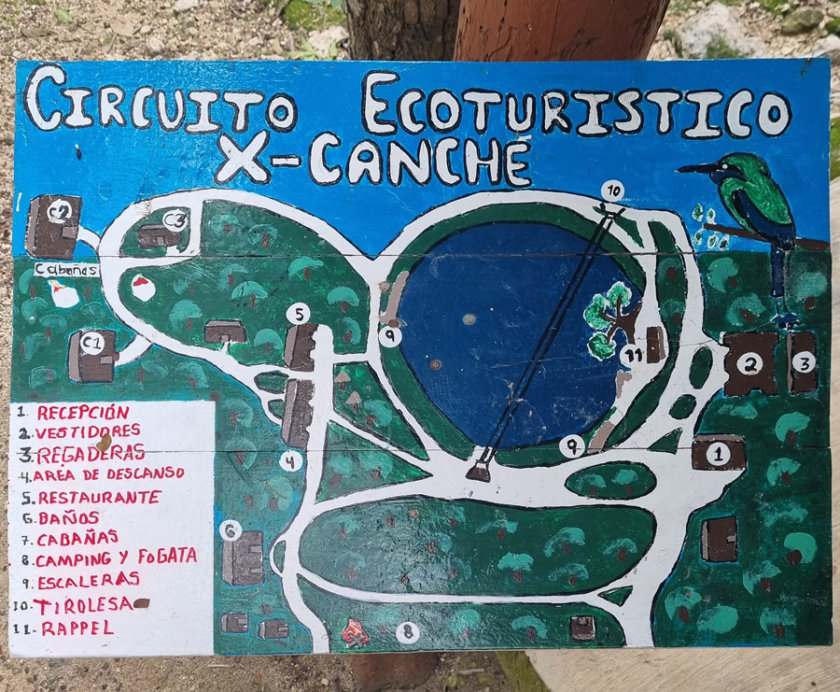 CIRCUITO ECOTURISTICO
X-CANCHÉ
10
C2
C3
Cabañas
5
9
C1
11
2
3
9
1
4
6
8
1. RECEPCIÓN
2. VESTIDORES
3. REGADERAS
4. AREA DE DESCANSO
5. RESTAURANTE
6. BAÑOS
7. CABAÑAS
8. CAMPING Y FOGATA
9. ESCALERAS
10. TIROLESA
11. RAPPEL